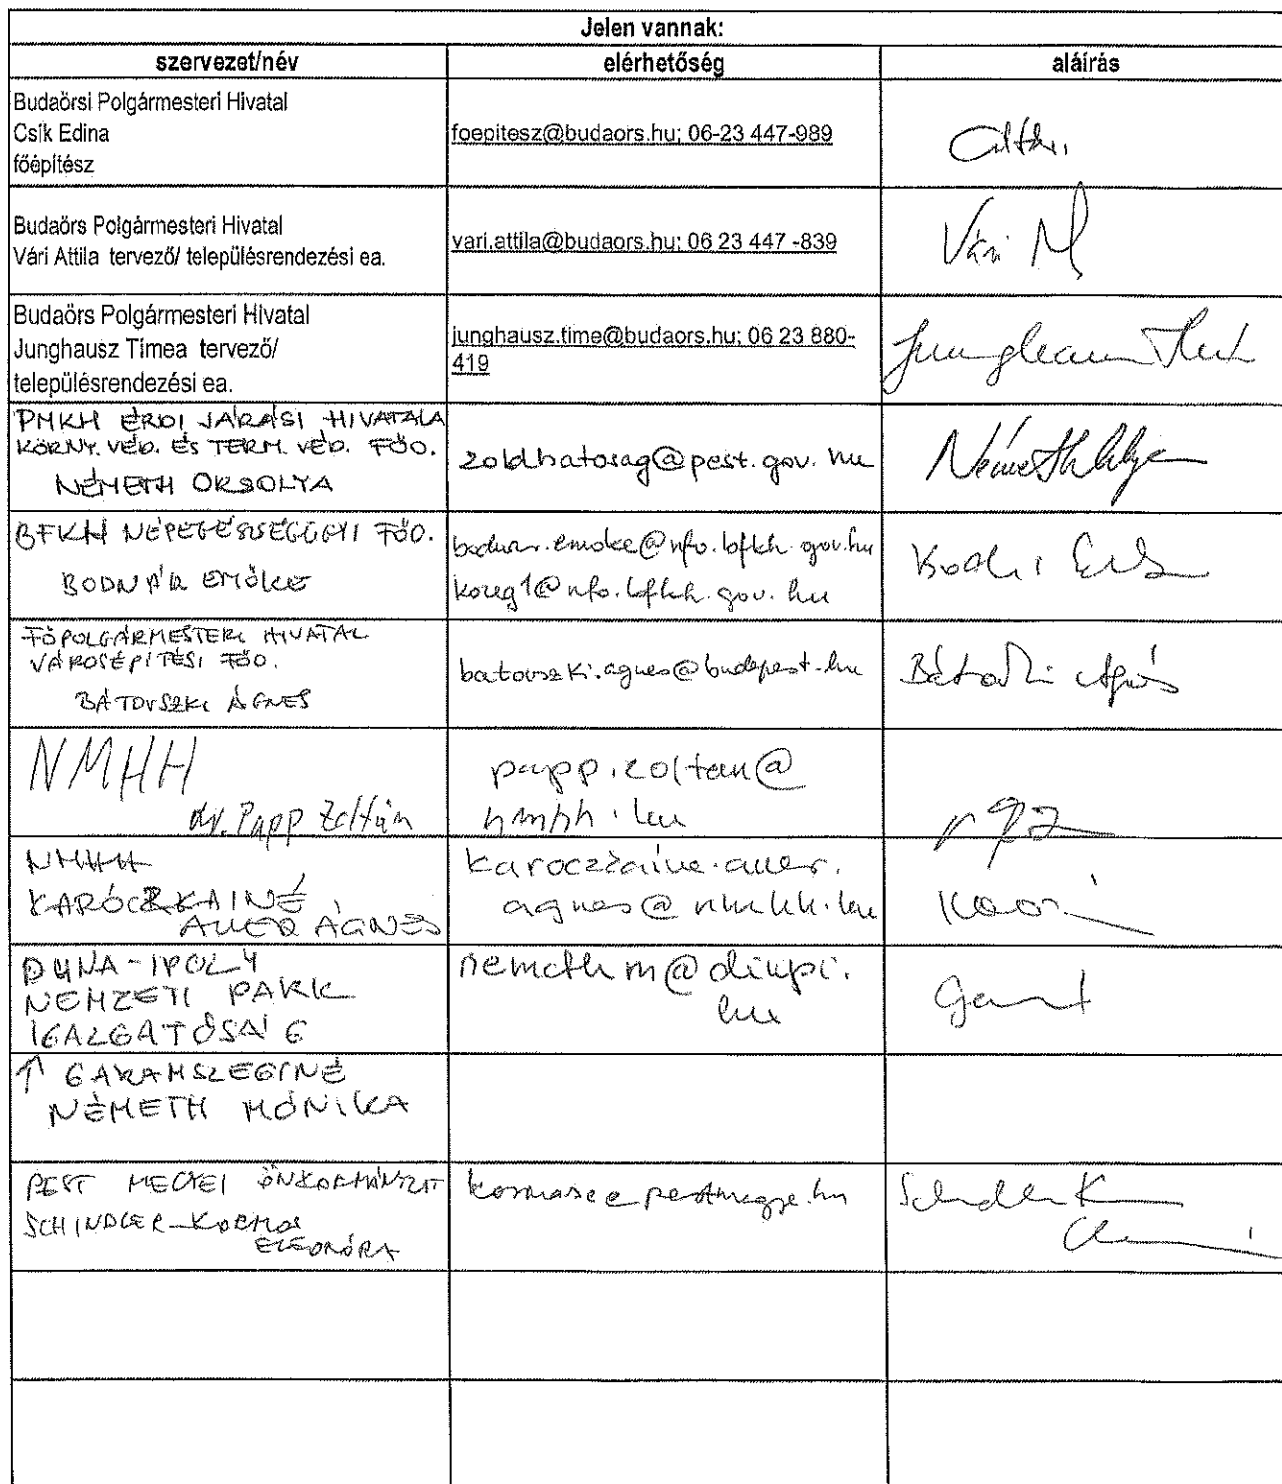 Jelen vannak:
szervezet/név elérhetőség aláírás
Budaörsi Polgármesteri Hivatal
Csík Edina
főépítész
foepitesz@budaors.hu; 06-23 447-989
Budaörs Polgármesteri Hivatal
Vári Attila tervező/ településrendezési ea.
vari.attila@budaors.hu; 06 23 447 -839
Vári
Budaörs Polgármesteri Hivatal
Junghausz Tímea tervező/
településrendezési ea.
junghausz.time@budaors.hu; 06 23 880-
419
PMKH ÉRDI JÁRÁSI HIVATALA
KÖRNY. VÉD. ÉS TERM. VÉD. FŐO.
NÉMETH ORSOLYA
zoldhatosag@pest.gov.hu
Németh
BFKH NÉPEGÉSZSÉGÜGYI FŐO.
BODNÁR EMŐKE
bodnar.emoke@nfo.bfkh.gov.hu
kozeg1@nfo.bfkh.gov.hu
FŐPOLGÁRMESTERI HIVATAL
VÁROSÉPÍTÉSI FŐO.
BÁTOVSZKI ÁGNES
batovszki.agnes@budapest.hu
Bátovszki Ágnes
NMHH
dr. Papp Zoltán
papp.zoltan@
nmhh.hu
NMHH
KARÓCZKAINÉ
AUER ÁGNES
karoczkaine.auer.
agnes@nmhh.hu
DUNA-IPOLY
NEMZETI PARK
IGAZGATÓSÁG
nemethm@dinpi.
hu
↑ GARAMSZEGINÉ
NÉMETH MÓNIKA
PEST MEGYEI ÖNKORMÁNYZAT
SCHINDLER-KORMOS
ELEONÓRA
kormose@pestmegye.hu